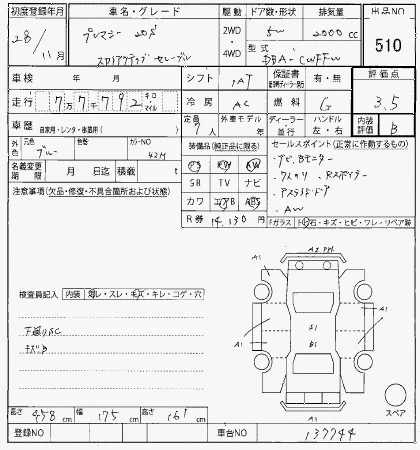 初度登録年月
28年
11月
車名・グレード
プレマシー 20S
スカイアクティブ セレーブル
駆動
2WD
4WD
ドア数・形状
5W
排気量
2000cc
型式
DBA-CWFFW
出品NO
510
車検 年 月
シフト
IAT
保証書
有・無
評価点
3.5
走行
7万7千792
キロ
マイル
冷房
AC
燃料
G
内装評価
B
車歴
自家用・レンタ・休業用( )
定員
7人
外車モデル年
年
ディーラー
並行
ハンドル
左・右
外色
元色
ブルー
色替
カラーNO
42M
名義変更期限
月 日迄
積載
t
装備品(純正品に限る)
PS PW AW
SR TV ナビ
カワ エアB ABS
R券 14,130円
セールスポイント(正常に動作するもの)
・ナビ,Bモニター
・AW
注意事項(欠品・修復・不具合箇所および状態)
Fガラス
石・キズ・ヒビ・ワレ・リペア跡
検査員記入
内装
スレ・キズ・キレ・コゲ・穴
下廻りSC
キズB
A2 PPL
A1
A1
A1
A1
S1
B1
A1
A1
スペア
長さ 458cm
幅 175cm
高さ 161cm
登録NO
車台NO
137744